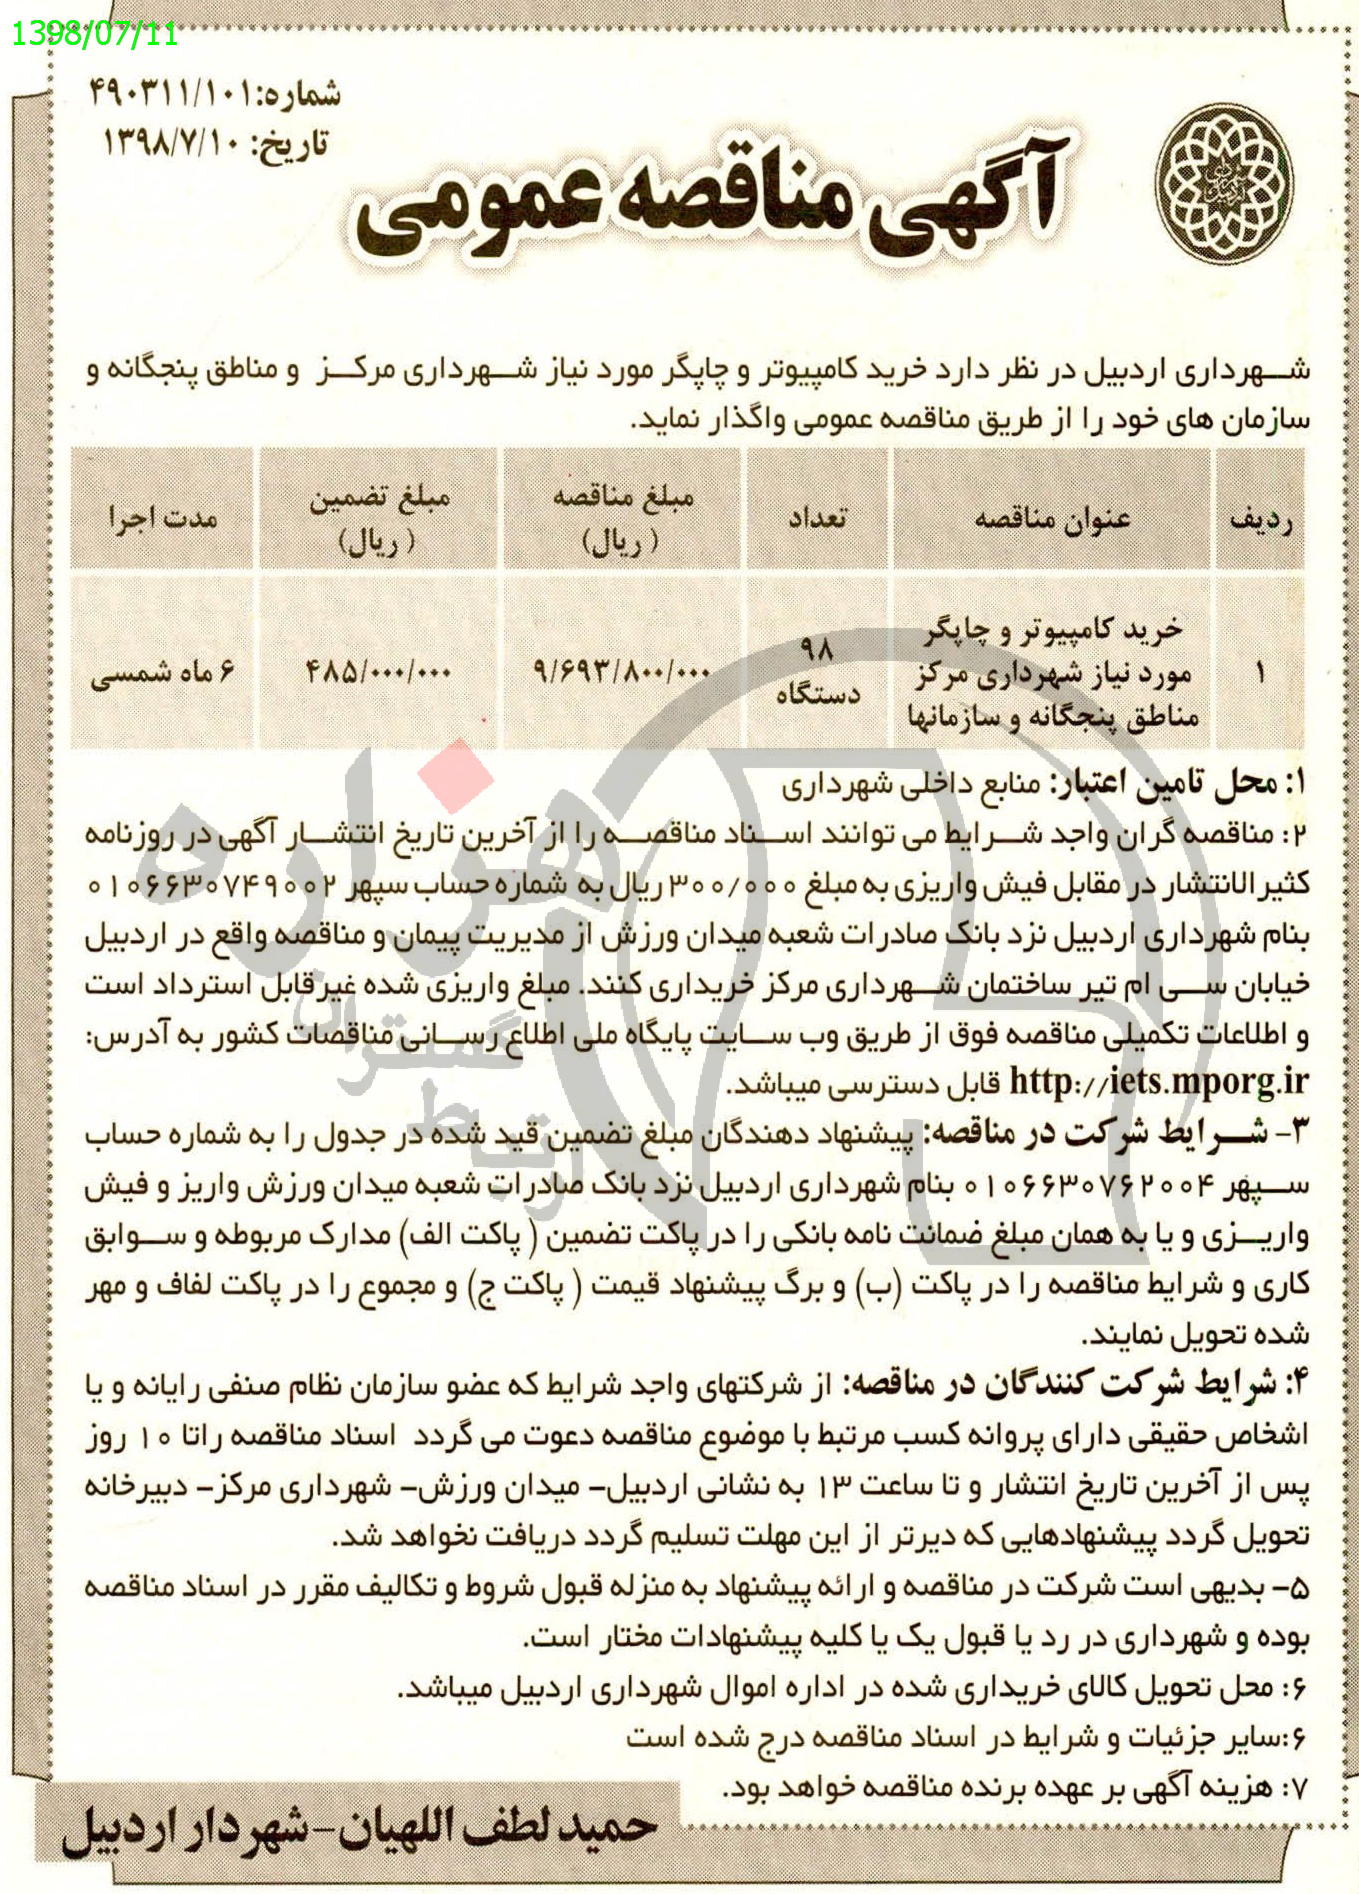 1398/07/11
شماره:۴۹۰۳۱۱/۱۰۱
تاریخ: ۱۳۹۸/۷/۱۰
آگهی مناقصه عمومی
شهرداری اردبیل در نظر دارد خرید کامپیوتر و چاپگر مورد نیاز شهرداری مرکز و مناطق پنجگانه و
سازمان های خود را از طریق مناقصه عمومی واگذار نماید.
ردیف عنوان مناقصه تعداد مبلغ مناقصه (ریال) مبلغ تضمین (ریال) مدت اجرا
۱ خرید کامپیوتر و چاپگر مورد نیاز شهرداری مرکز مناطق پنجگانه و سازمانها ۹۸ دستگاه ۹/۶۹۳/۸۰۰/۰۰۰ ۴۸۵/۰۰۰/۰۰۰ ۶ ماه شمسی
۱: محل تامین اعتبار: منابع داخلی شهرداری
۲: مناقصه گران واجد شرایط می توانند اسناد مناقصه را از آخرین تاریخ انتشار آگهی در روزنامه
کثیرالانتشار در مقابل فیش واریزی به مبلغ ۳۰۰/۰۰۰ ریال به شماره حساب سپهر ۰۱۰۶۶۳۰۷۴۹۰۰۲
بنام شهرداری اردبیل نزد بانک صادرات شعبه میدان ورزش از مدیریت پیمان و مناقصه واقع در اردبیل
خیابان سی ام تیر ساختمان شهرداری مرکز خریداری کنند. مبلغ واریزی شده غیرقابل استرداد است
و اطلاعات تکمیلی مناقصه فوق از طریق وب سایت پایگاه ملی اطلاع رسانی مناقصات کشور به آدرس:
http://iets.mporg.ir قابل دسترسی میباشد.
۳- شرایط شرکت در مناقصه: پیشنهاد دهندگان مبلغ تضمین قید شده در جدول را به شماره حساب
سپهر ۰۱۰۶۶۳۰۷۶۲۰۰۴ بنام شهرداری اردبیل نزد بانک صادرات شعبه میدان ورزش واریز و فیش
واریزی و یا به همان مبلغ ضمانت نامه بانکی را در پاکت تضمین ( پاکت الف) مدارک مربوطه و سوابق
کاری و شرایط مناقصه را در پاکت (ب) و برگ پیشنهاد قیمت ( پاکت ج) و مجموع را در پاکت لفاف و مهر
شده تحویل نمایند.
۴: شرایط شرکت کنندگان در مناقصه: از شرکتهای واجد شرایط که عضو سازمان نظام صنفی رایانه و یا
اشخاص حقیقی دارای پروانه کسب مرتبط با موضوع مناقصه دعوت می گردد اسناد مناقصه راتا ۱۰ روز
پس از آخرین تاریخ انتشار و تا ساعت ۱۳ به نشانی اردبیل- میدان ورزش- شهرداری مرکز- دبیرخانه
تحویل گردد پیشنهادهایی که دیرتر از این مهلت تسلیم گردد دریافت نخواهد شد.
۵- بدیهی است شرکت در مناقصه و ارائه پیشنهاد به منزله قبول شروط و تکالیف مقرر در اسناد مناقصه
بوده و شهرداری در رد یا قبول یک یا کلیه پیشنهادات مختار است.
۶: محل تحویل کالای خریداری شده در اداره اموال شهرداری اردبیل میباشد.
۶:سایر جزئیات و شرایط در اسناد مناقصه درج شده است
۷: هزینه آگهی بر عهده برنده مناقصه خواهد بود.
حمید لطف اللهیان-شهردار اردبیل
هزاره
گستران